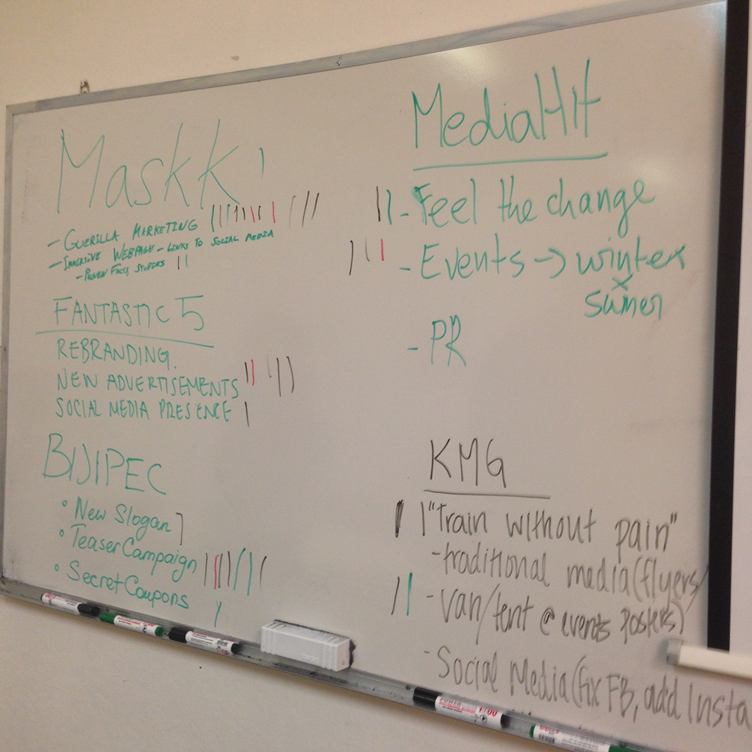 Maskk
- GUERILLA MARKETING
- IMMERSIVE WEBPAGE - LINKS TO SOCIAL MEDIA
- PROVEN FACTS, STUDIES
FANTASTIC 5
REBRANDING.
NEW ADVERTISEMENTS
SOCIAL MEDIA PRESENCE
BIJIPEC
• New Slogan
• Teaser Campaign
• Secret Coupons
MediaHIt
- Feel the change
- Events → winter
x
sumer
- PR
KMG
"Train without pain"
- traditional media (flyers/
- van/tent @ events posters)
- Social Media (fix FB, add Insta